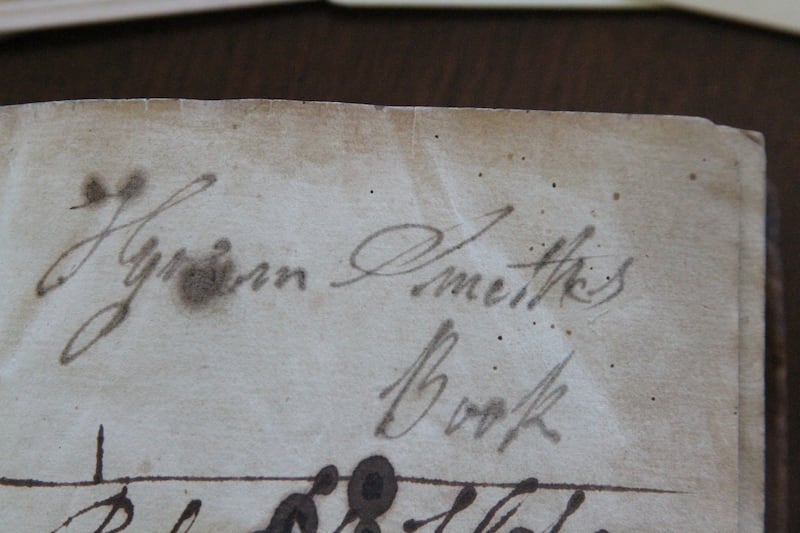 Hyrum Smiths
Book